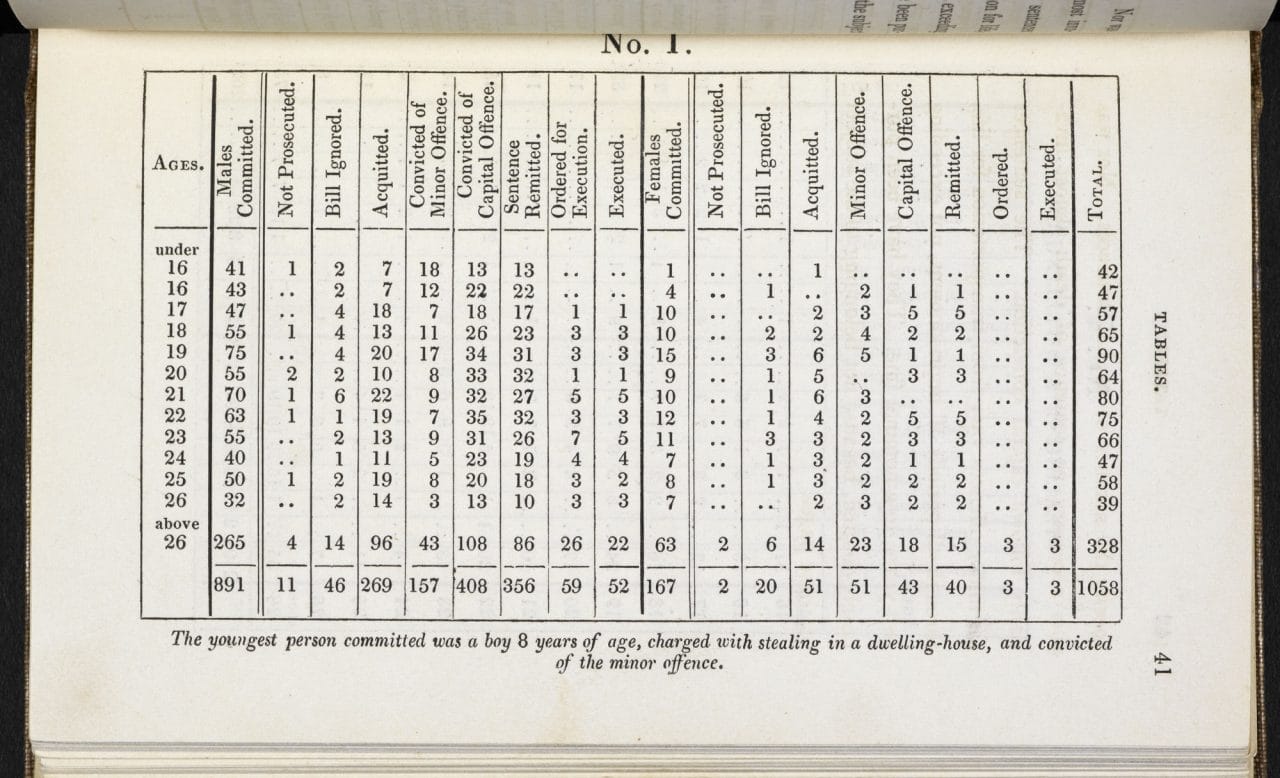 No. I.
AGES. Males Committed. Not Prosecuted. Bill Ignored. Acquitted. Convicted of Minor Offence. Convicted of Capital Offence. Sentence Remitted. Ordered for Execution. Executed. Females Committed. Not Prosecuted. Bill Ignored. Acquitted. Minor Offence. Capital Offence. Remitted. Ordered. Executed. TOTAL.
under
16 41 1 2 7 18 13 13 .. .. 1 .. .. 1 .. .. .. .. .. 42
16 43 .. 2 7 12 22 22 .. .. 4 .. 1 .. 2 1 1 .. .. 47
17 47 .. 4 18 7 18 17 1 1 10 .. .. 2 3 5 5 .. .. 57
18 55 1 4 13 11 26 23 3 3 10 .. 2 2 4 2 2 .. .. 65
19 75 .. 4 20 17 34 31 3 3 15 .. 3 6 5 1 1 .. .. 90
20 55 2 2 10 8 33 32 1 1 9 .. 1 5 .. 3 3 .. .. 64
21 70 1 6 22 9 32 27 5 5 10 .. 1 6 3 .. .. .. .. 80
22 63 1 1 19 7 35 32 3 3 12 .. 1 4 2 5 5 .. .. 75
23 55 .. 2 13 9 31 26 7 5 11 .. 3 3 2 3 3 .. .. 66
24 40 .. 1 11 5 23 19 4 4 7 .. 1 3 2 1 1 .. .. 47
25 50 1 2 19 8 20 18 3 2 8 .. 1 3 2 2 2 .. .. 58
26 32 .. 2 14 3 13 10 3 3 7 .. .. 2 3 2 2 .. .. 39
above
26 265 4 14 96 43 108 86 26 22 63 2 6 14 23 18 15 3 3 328
891 11 46 269 157 408 356 59 52 167 2 20 51 51 43 40 3 3 1058
The youngest person committed was a boy 8 years of age, charged with stealing in a dwelling-house, and convicted
of the minor offence.
TABLES.
41